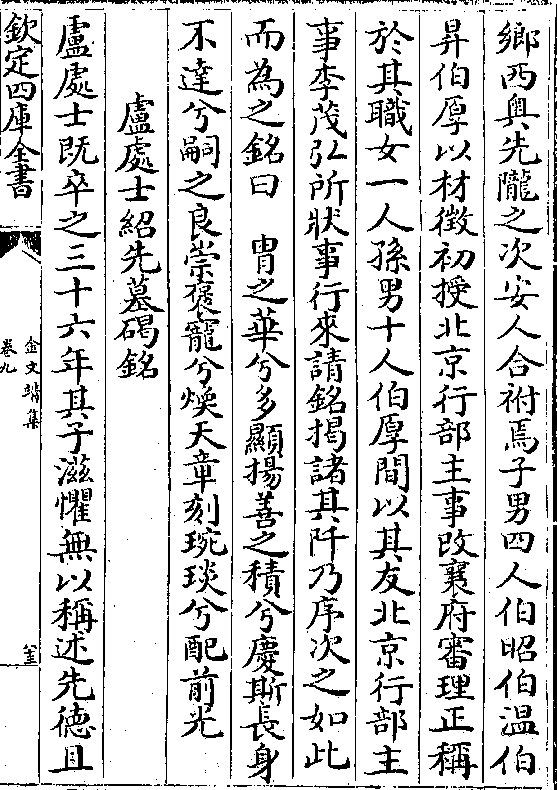 鄉西輿先隴之次安人合祔焉子男四人伯昭伯温伯
昇伯厚以材徴初授北京行部主事改襄府審理正稱
於其職女一人孫男十人伯厚間以其友北京行部主
事李茂弘所狀事行來請銘掲諸其阡乃序次之如此
而為之銘曰　胄之華兮多顯揚善之積兮慶斯長身
不達兮嗣之良崇褒寵兮煥天章刻琬琰兮配前光
盧處士紹先墓碣銘
盧處士既卒之三十六年其子滋懼無以稱述先徳且
欽定四庫全書
金文靖集
卷九